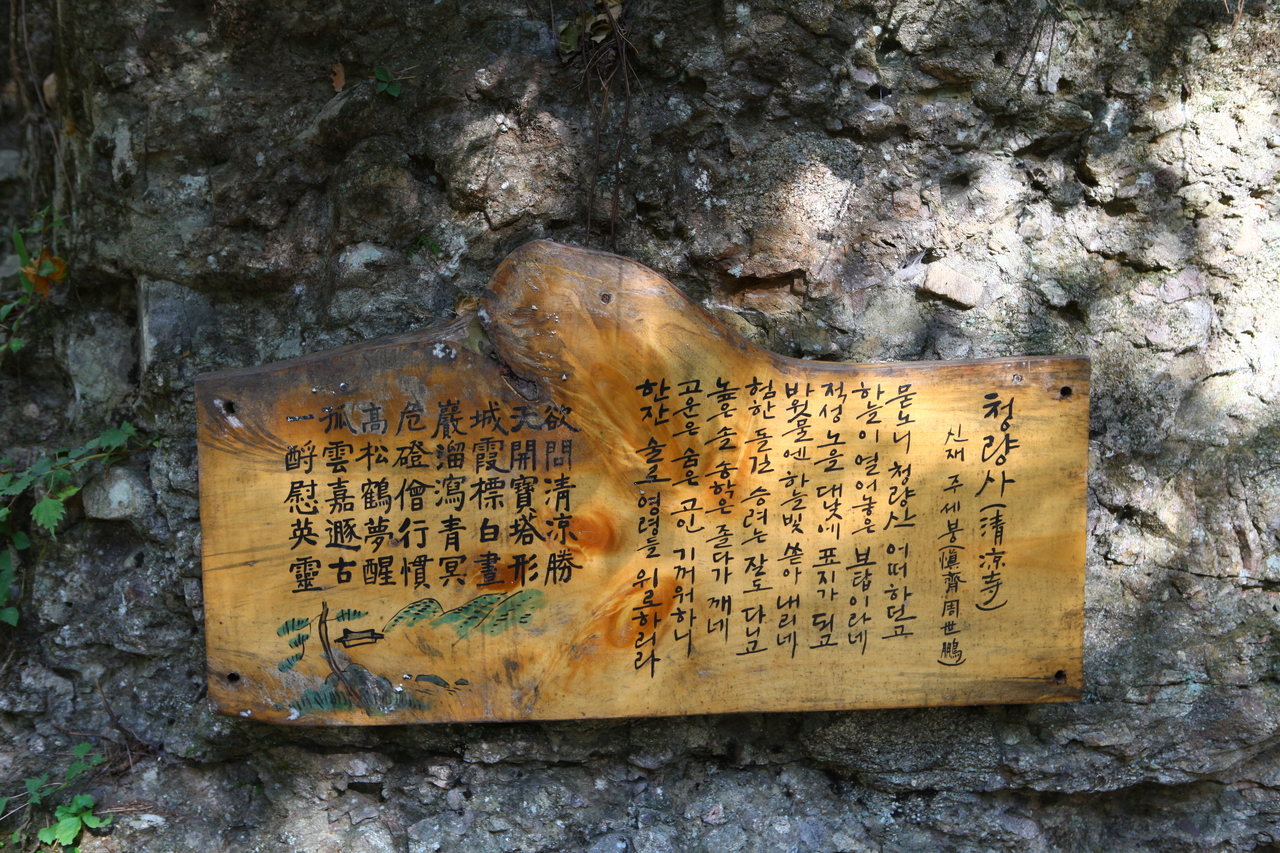 청량사(淸凉寺)
신재 주세붕(愼齊周世鵬)
묻노니 청량산 어떠하던고
하늘이 열어놓은 보탑이라네
적성 노을 대낮에 표지가 되고
바윗물엔 하늘빛 쏟아 내리네
험한 돌길 승려는 잘도 다니고
높은 솔 송학은 졸다가 깨네
고운은 숨은 고인 기꺼워하니
한잔 술로 영령들 위로하리라
欲問清凉勝
天開寶塔形
城霞標白晝
巖溜瀉青冥
危磴僧行慣
高松鶴夢醒
孤雲嘉遯古
一酹慰英靈